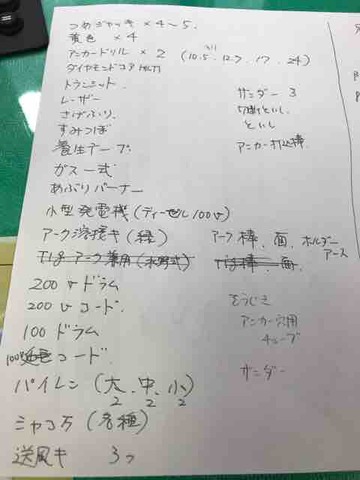 つめジャッキ × 4～5.
黄色 × 4
アンカードリル × 2 (10.5. 12.7 . 17 . 24)
ダイヤモンドコアドリル
トランシット.
レーザー
サンダー 3
さげふり.
切断といし
すみつぼ
といし
養生テープ
アンカー打込棒
ガス一式
あぶりバーナー
小型発電機 (ディーゼル100v)
アーク溶接キ (緑) アーク棒、面、ホルダー
アース
Tig アーク兼用 (水野式) Tig棒 面
200v ドラム
200v コード.
そうじき
100 ドラム
アンカー穴用
チューブ
100v コード.
サンダー
パイレン (大、中、小)
2 2 2
ミヤコ万 (各種)
送風キ 3つ